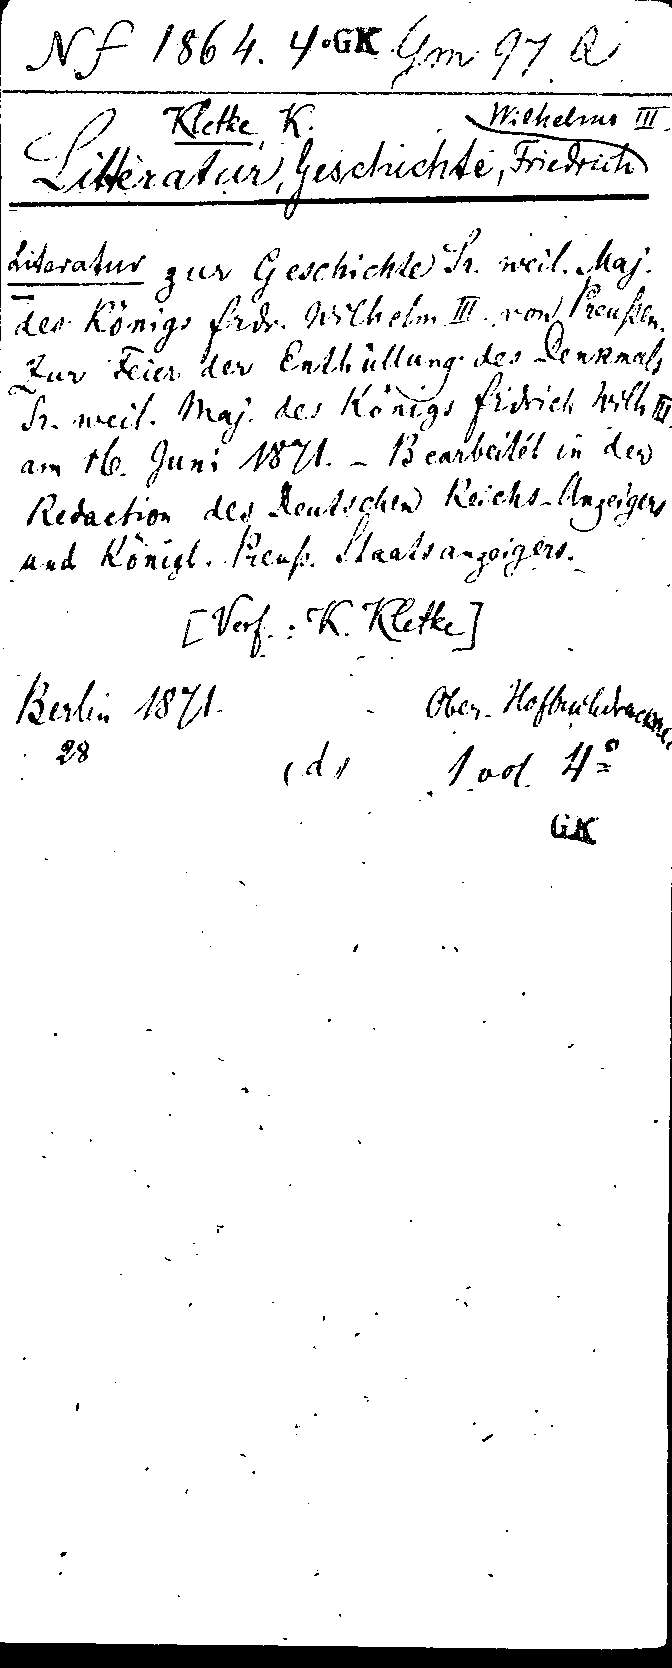 Nf 1864. 4° GK Gm 97. Q
Kletke, K. Wilhelms III.
Litteratur, Geschichte, Friedrich
Literatur zur Geschichte Sr. weil. Maj.
des Königs Frdr. Wilhelm III. von Preußen.
Zur Feier der Enthüllung des Denkmals
Sr. weil. Maj. des Königs Fridrich Wilh III.
am 16. Juni 1871. – Bearbeitet in der
Redaction des Deutschen Reichs-Anzeigers
und Königl. Preuß. Staatsanzeigers.
[Verf.: K. Kletke]
Berlin 1871. Ober-Hofbuchdruckerei
28 (d) 1 vol 4°
GK